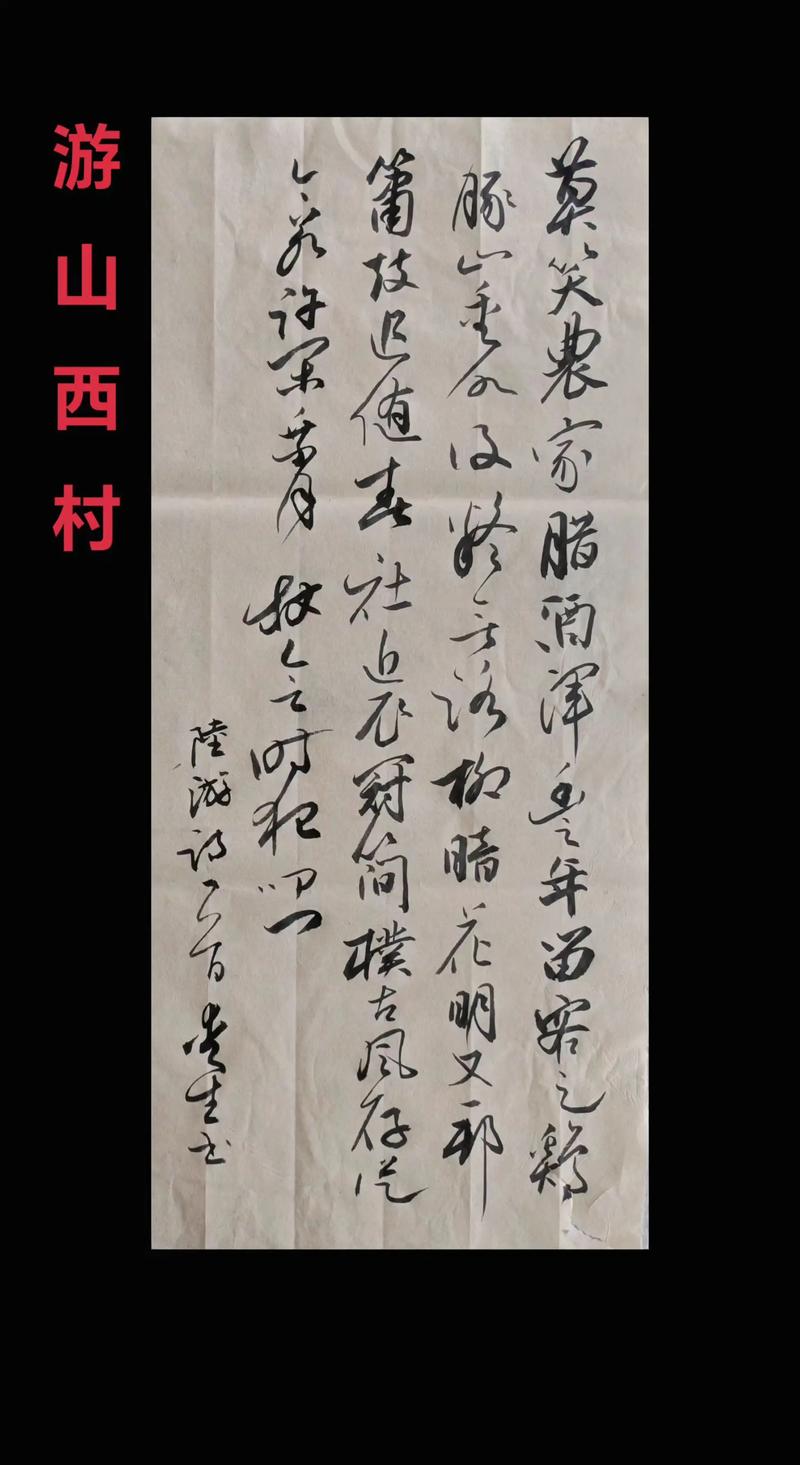 游山西村
莫笑農家腊酒渾豐年留客足鷄
豚山重水復疑无路柳暗花明又一邨
簫鼓追随春社近衣冠簡樸古風存從
今若許閑乘月时叩门
陸游詩一首生书